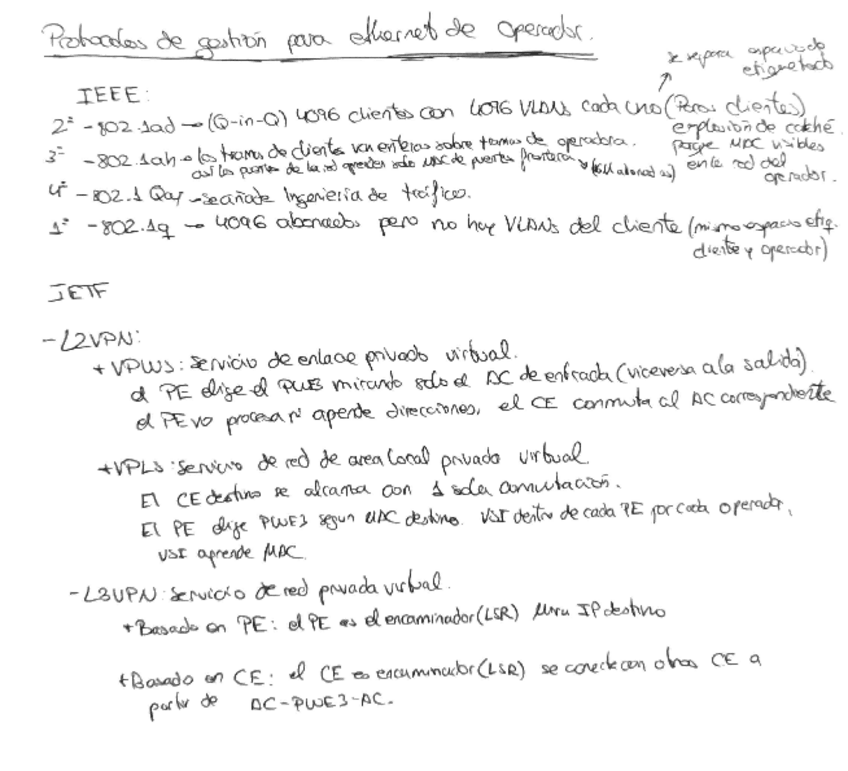 Protocolos de gestión para ethernet de operador.
se separa espacio de
etiquetado
IEEE:
2º -802.1ad → (Q-in-Q) 4096 clientes con 4096 VLANs cada uno (Para clientes)
explosión de caché
porque MAC visibles
en la red del
operador.
3º -802.1ah → las tramas de cliente van enteras sobre tramas de operadora.
así los puentes de la red aprenden solo MAC de puertos frontera
4º -802.1 Qay → se añade Ingeniería de tráfico.
1º -802.1q → 4096 abonados pero no hay VLANs del cliente (mismo espacio etiq.
cliente y operador)
IETF
-L2VPN:
+ VPWS: Servicio de enlace privado virtual.
el PE elige el PWE3 mirando solo el AC de entrada (viceversa a la salida)
el PE no procesa ni aprende direcciones, el CE conmuta al AC correspondiente
+VPLS: Servicio de red de area local privado virtual
El CE destino se alcanza con 1 sola conmutación.
El PE elige PWE3 segun MAC destino. VSI dentro de cada PE por cada operador,
VSI aprende MAC.
-L3VPN: Servicio de red privada virtual.
+Basado en PE: el PE es el encaminador (LSR) Mira IP destino
+Basado en CE: el CE es encaminador (LSR) se conecta con otros CE a
partir de AC-PWE3-AC.